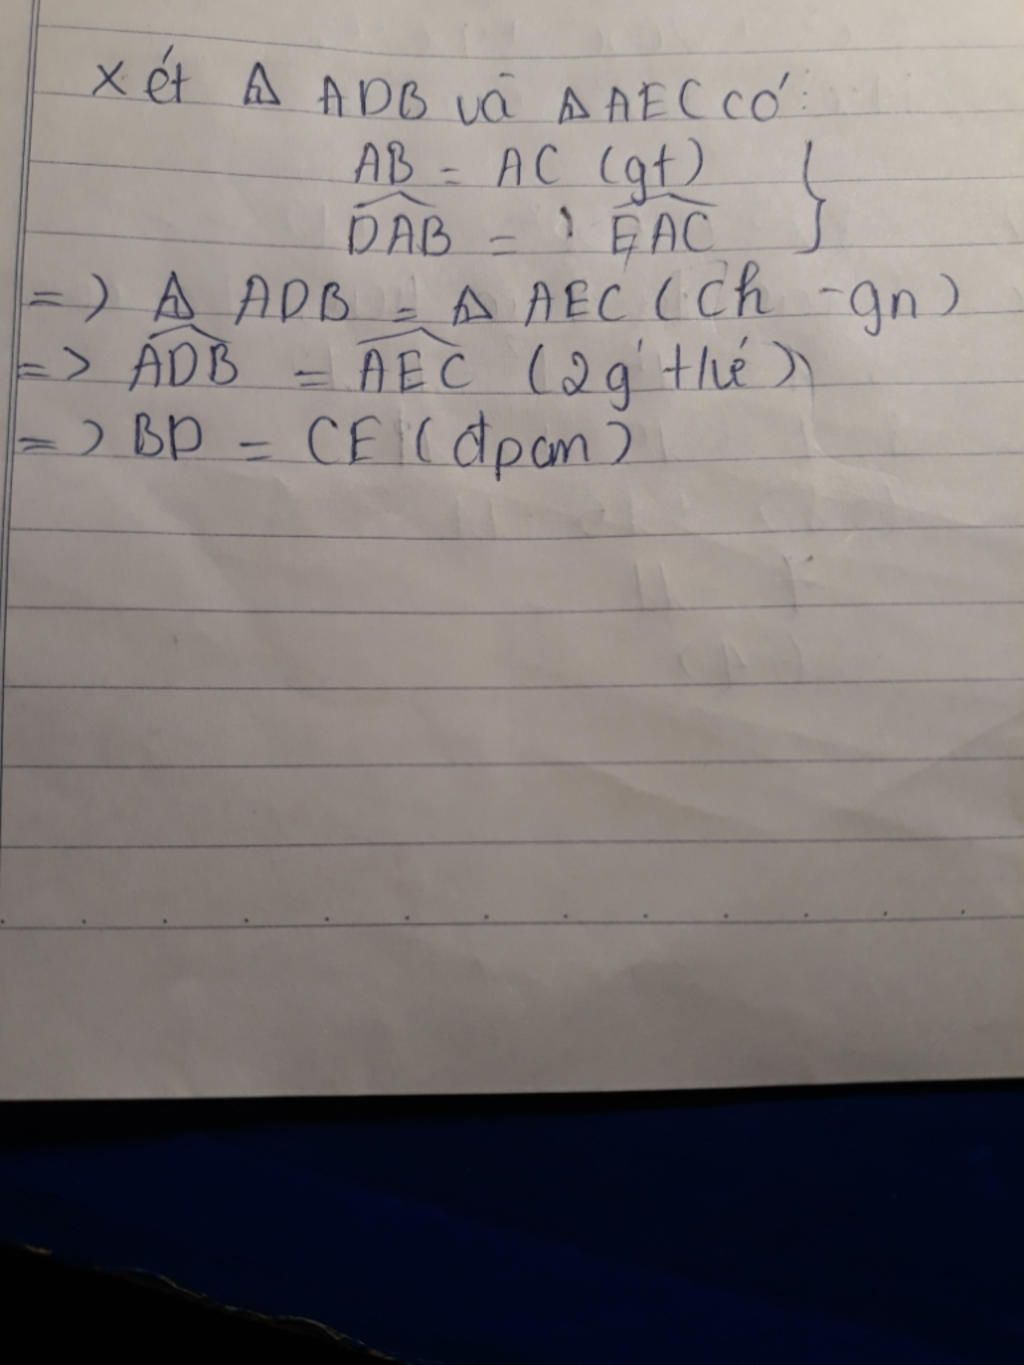 Xét Δ ADB và Δ AEC có:
AB = AC (gt)
DAB = EAC
=> Δ ADB = Δ AEC (ch - gn)
=> ADB = AEC (2 g' t/ứ)
=> BD = CE (đpcm)